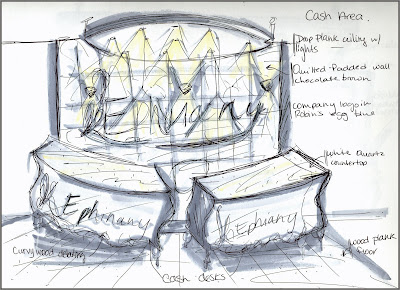 Cash Area.
Drop Plank ceiling w/
lights
Quilted-Padded wall
chocolate brown
company logo in
Robin's egg blue
Ephiany
white Quartz
countertop
Ephinany
Ephiany
Curvy wood detailing
wood plank
floor
Cash desks